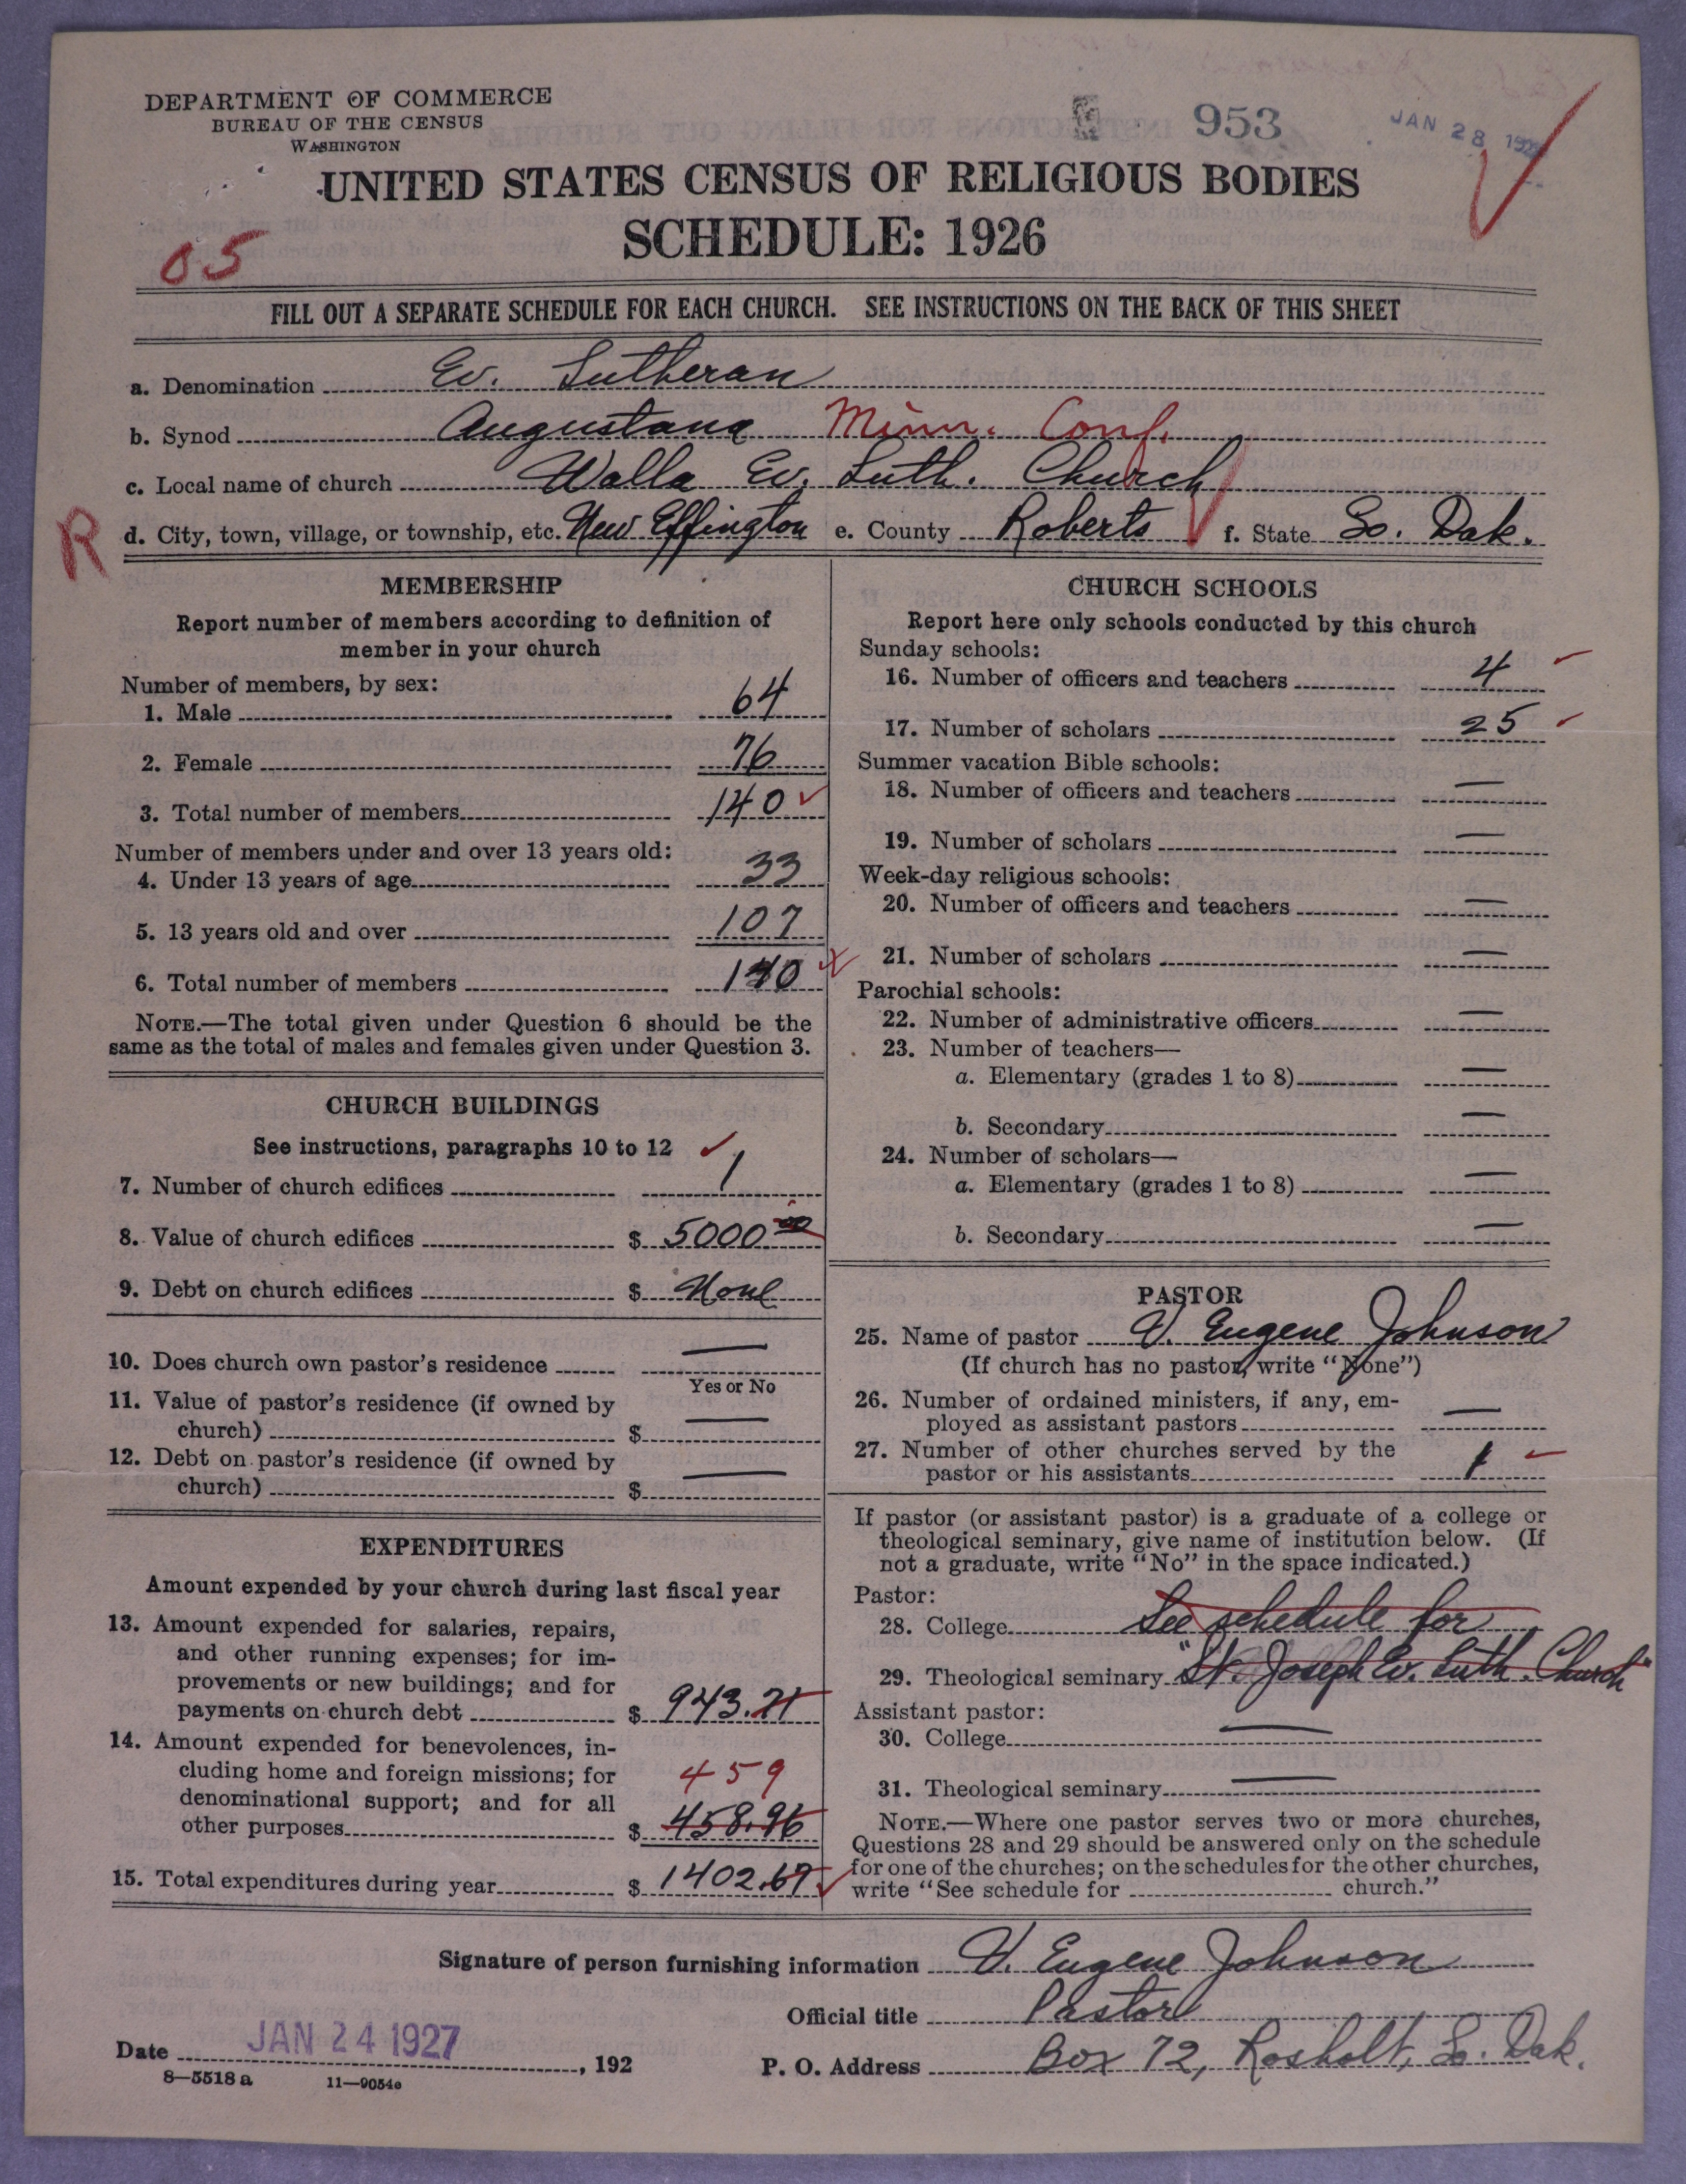 DEPARTMENT OF COMMERCE
BUREAU OF THE CENSUS
WASHINGTON
953
JAN 28 192
UNITED STATES CENSUS OF RELIGIOUS BODIES
SCHEDULE: 1926
05
FILL OUT A SEPARATE SCHEDULE FOR EACH CHURCH. SEE INSTRUCTIONS ON THE BACK OF THIS SHEET
a. Denomination Ev. Lutheran
b. Synod Augustana Minn. Conf.
c. Local name of church Walla Ev. Luth. Church
R d. City, town, village, or township, etc. New Effington e. County Roberts f. State So. Dak.
MEMBERSHIP
Report number of members according to definition of
member in your church
Number of members, by sex:
1. Male 64
2. Female 76
3. Total number of members 140
Number of members under and over 13 years old:
4. Under 13 years of age 33
5. 13 years old and over 107
6. Total number of members 140
NOTE.—The total given under Question 6 should be the
same as the total of males and females given under Question 3.
CHURCH BUILDINGS
See instructions, paragraphs 10 to 12
7. Number of church edifices 1
8. Value of church edifices $ 5000 00
9. Debt on church edifices $ None
10. Does church own pastor's residence —
Yes or No
11. Value of pastor's residence (if owned by
church) $ —
12. Debt on pastor's residence (if owned by
church) $ —
EXPENDITURES
Amount expended by your church during last fiscal year
13. Amount expended for salaries, repairs,
and other running expenses; for im-
provements or new buildings; and for
payments on church debt $ 943.71
14. Amount expended for benevolences, in-
cluding home and foreign missions; for
denominational support; and for all
459
other purposes $ 458.96
15. Total expenditures during year $ 1402.67
CHURCH SCHOOLS
Report here only schools conducted by this church
Sunday schools:
16. Number of officers and teachers 4
17. Number of scholars 25
Summer vacation Bible schools:
18. Number of officers and teachers —
19. Number of scholars —
Week-day religious schools:
20. Number of officers and teachers —
21. Number of scholars —
Parochial schools:
22. Number of administrative officers —
23. Number of teachers—
a. Elementary (grades 1 to 8) —
b. Secondary —
24. Number of scholars—
a. Elementary (grades 1 to 8) —
b. Secondary —
PASTOR
25. Name of pastor V. Eugene Johnson
(If church has no pastor, write "None")
26. Number of ordained ministers, if any, em-
ployed as assistant pastors —
27. Number of other churches served by the
pastor or his assistants 1
If pastor (or assistant pastor) is a graduate of a college or
theological seminary, give name of institution below. (If
not a graduate, write "No" in the space indicated.)
Pastor:
28. College See schedule for
29. Theological seminary "St. Joseph Ev. Luth. Church"
Assistant pastor:
30. College —
31. Theological seminary —
NOTE.—Where one pastor serves two or more churches,
Questions 28 and 29 should be answered only on the schedule
for one of the churches; on the schedules for the other churches,
write "See schedule for church."
Signature of person furnishing information V. Eugene Johnson
Official title Pastor
Date JAN 24 1927, 192
P. O. Address Box 72, Rosholt, So. Dak.
8—5518 a 11—9054e